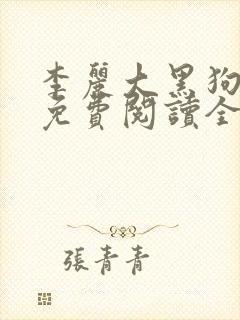 李麗大黑狗
免費閱讀全
張青青